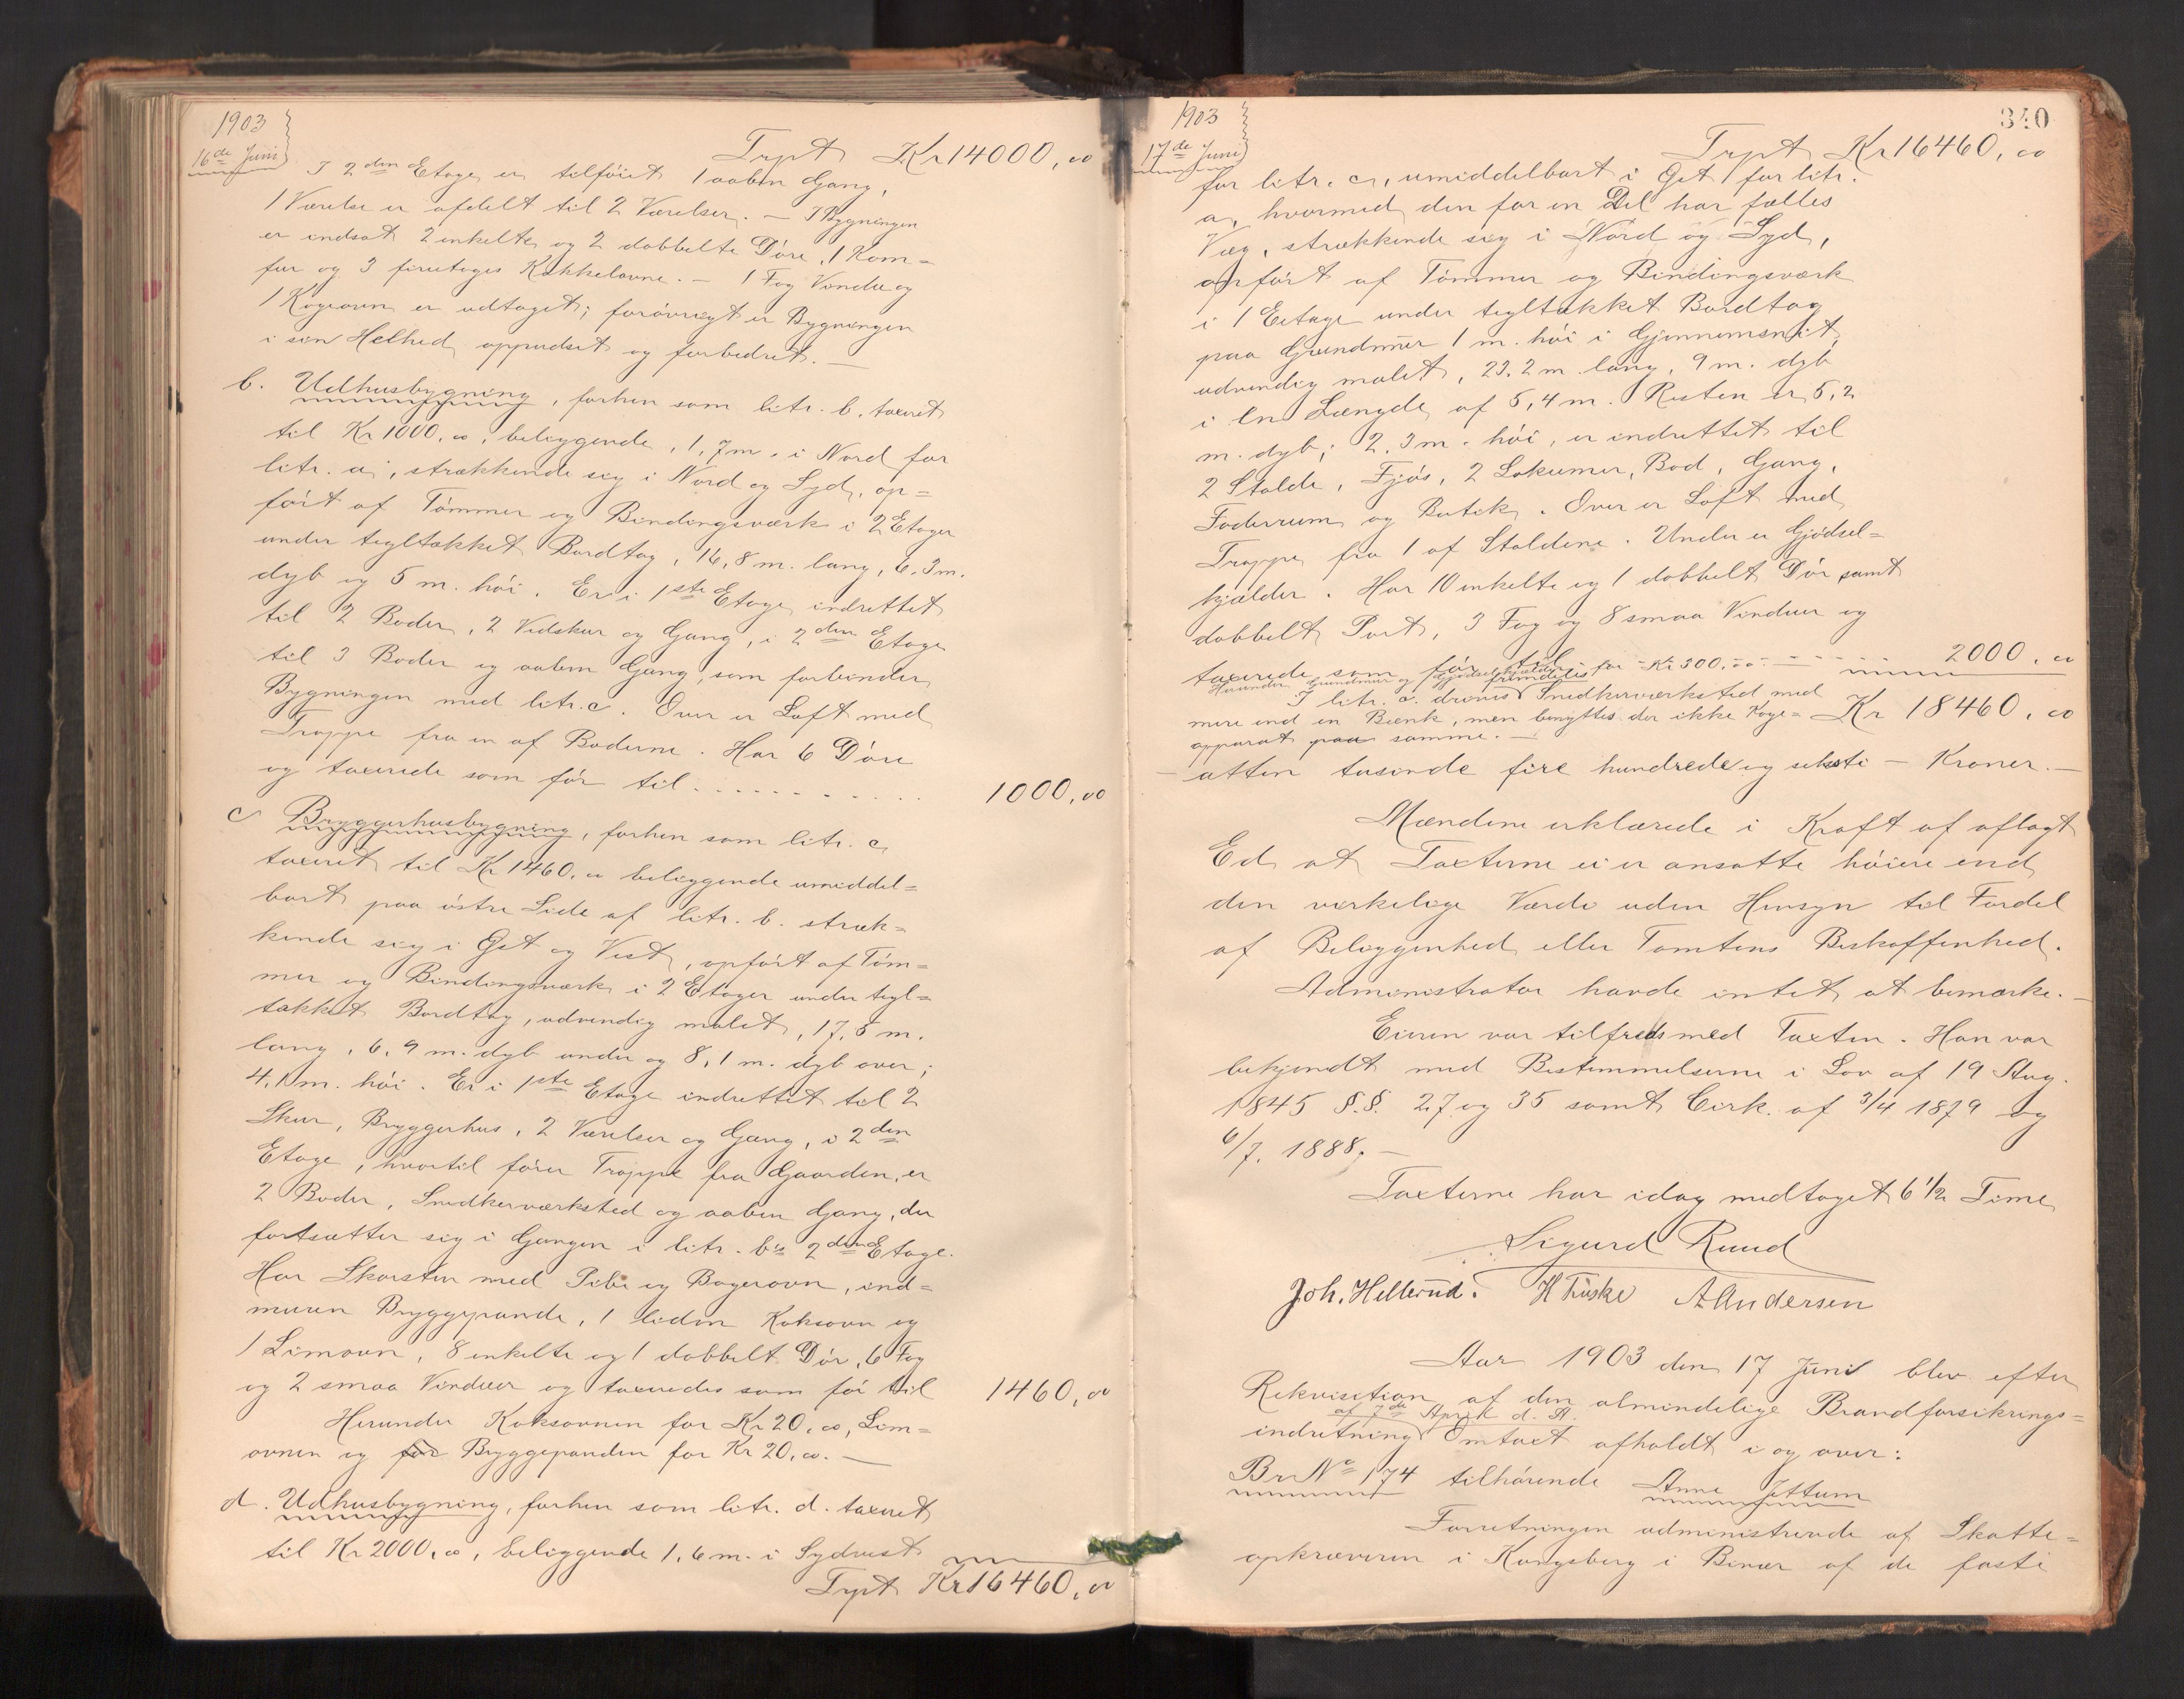 1903
16de Juni
Trpt Kr 14000,00
I 2den Etage er tilføiet 1 aaben Gang,
1 Værelse er afdelt til 2 Værelser. — I Bygningen
er indsat 2 enkelte og 2 dobbelte Døre, 1 Kom=
fur og 3 fireetages Kakkelovne. — 1 Fag Vindu og
1 Kogeovn er udtaget; forøvrigt er Bygningen
i sin Helhed oppudset og forbedret. —
b. Udhusbygning, forhen som litr. b. taxeret
til Kr 1000,00, beliggende, 1,7 m. i Nord for
litr. a, strækkende sig i Nord og Syd, op=
ført af Tømmer og Bindingsværk i 2 Etager
under tegltækket Bordtag, 16,8 m. lang, 6,3 m.
dyb og 5 m. høi. Er i 1ste Etage indrettet
til 2 Boder, 2 Vedskur og Gang, i 2den Etage
til 3 Boder og aaben Gang, som forbinder
Bygningen med litr. c. Over er Loft med
Trappe fra en af Boderne. Har 6 Døre
og taxerede som før til . . . . . . . . . . 1000,00
c Bryggerhusbygning, forhen som litr. c
taxeret til Kr 1460,00 beliggende umiddel=
bart paa østre Side af litr. b. stræk=
kende sig i Øst og Vest, opført af Tøm=
mer og Bindingsværk i 2 Etager under tegl=
tækket Bordtag, udvendig malet, 17,5 m.
lang, 6,9 m. dyb under og 8,1 m. dyb over;
4,1 m. høi. Er i 1ste Etage indrettet til 2
Skur, Bryggerhus, 2 Værelser og Gang, i 2den
Etage, hvortil fører Trappe fra Gaarden, er
2 Boder, Snedkerværksted og aaben Gang, der
fortsætter sig i Gangen i litr. b's 2den Etage.
Har Skorsten med Pibe og Bagerovn, ind=
muren Bryggepande, 1 liden Koksovn og
1 Limovn, 8 enkelte og 1 dobbelt Dør, 6 Fag
og 2 smaa Vinduer og taxeredes som før til 1460,00
Herunder Koksovnen for Kr 20,00, Lim=
ovnen og for Bryggepanden for Kr 20,00. —
d. Udhusbygning, forhen som litr. d. taxeret
til Kr 2000,00, beliggende 1,6 m. i Sydvest
Trpt Kr 16460,00
340
1903
17de Juni
Trpt Kr 16460,00
for litr. c, umiddelbart i Øst for litr.
a, hvormed den for en Del har fælles
Væg, strækkende sig i Nord og Syd,
opført af Tømmer og Bindingsværk
i 1 Eetage under tegltækket Bordtag
paa Grundmur 1 m. høi i Gjennemsnit,
udvendig malet, 23,2 m lang, 9 m. dyb
i en Længde af 5,4 m. Resten er 5,2
m. dyb; 2,3 m. høi, er indrettet til
2 Stalde, Fjøs, 2 Lokumer, Bod, Gang,
Foderrum og Butik. Over er Loft med
Trappe fra 1 af Staldene. Under er Gjødsel=
kjælder. Har 10 enkelte og 1 dobbelt Dør samt
dobbelt Port, 3 Fag og 8 smaa Vinduer og
taxerede som før til . . . . . . 2000,00
Herunder Grundmur og Gjødselkjælder for Kr 300,00. —
fremdeles
I litr. c. drives Snedkerværksted med
mere end en Bænk, men benyttes der ikke Koge= Kr 18460,00
apparat paa samme. —
— atten tusinde fire hundrede og seksti — Kroner. —
Mændene erklærede i Kraft af aflagt
Ed at Taxterne ei er ansatte høiere end
den virkelige Værdi uden Hensyn til Fordel
af Beliggenhed eller Tomtens Beskaffenhed.
Administrator havde intet at bemærke. —
Eieren var tilfreds med Taxten. Han var
bekjendt med Bestemmelserne i Lov af 19 Aug.
1845 §.§. 27 og 35 samt Cirk. af 3/4 1879 og
6/7. 1888. —
Taxterne har idag medtaget 6 1/2 Time
Sigurd Ruud
Joh. Hellerud. H Fuske A Andersen
Aar 1903 den 17 Juni blev efter
Rekvisition af den almindelige Brandforsikrings=
af 7de April d. A.
indretning Omtaxt afholdt i og over:
Br No 174 tilhørende Anne Jettum
Forretningen administrerede af Skatte=
opkræveren i Kongsberg i Binær af de faste